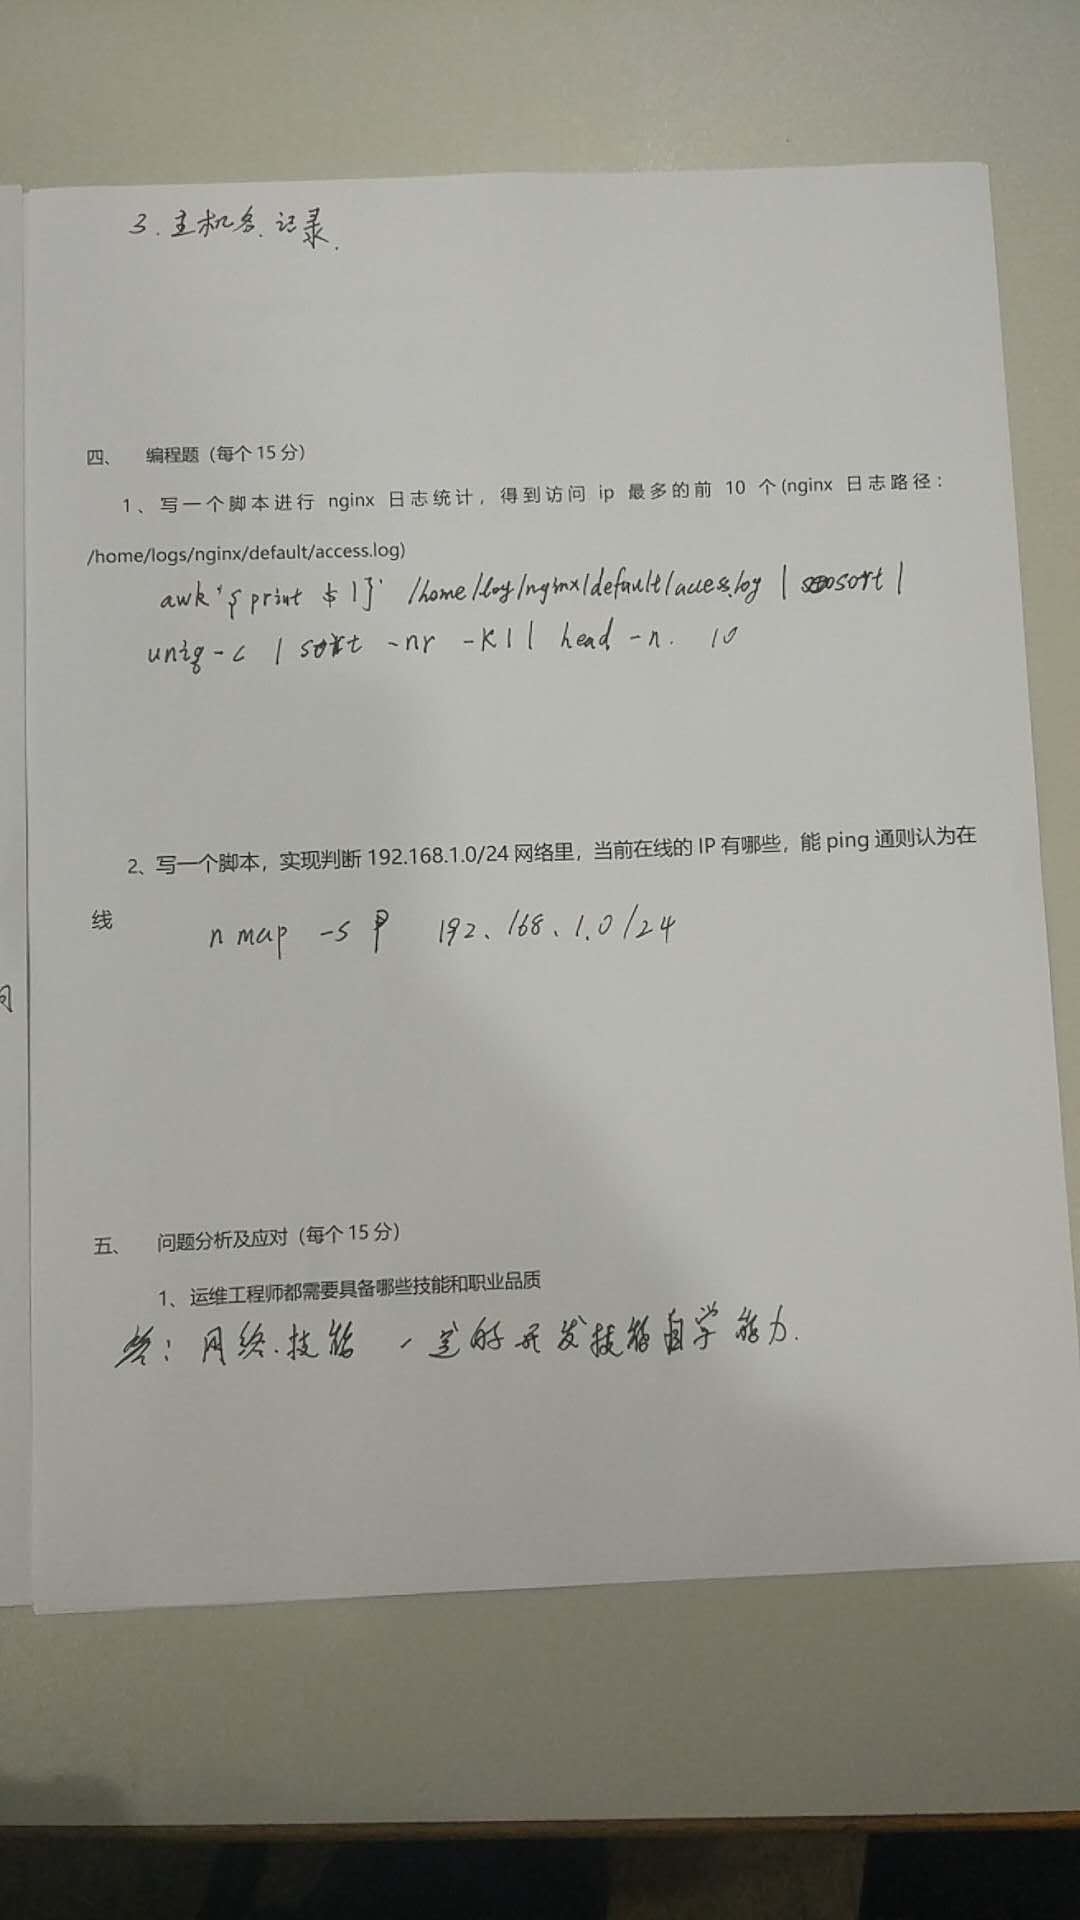 3.主机名.记录.
四、 编程题（每个15分）
1、写一个脚本进行 nginx 日志统计，得到访问 ip 最多的前 10 个(nginx 日志路径：
/home/logs/nginx/default/access.log)
awk '{print $1}' /home/log/nginx/default/acces.log | sort |
uniq -c | sort -nr -k1 | head -n. 10
2、写一个脚本，实现判断 192.168.1.0/24 网络里，当前在线的 IP 有哪些，能 ping 通则认为在
线
nmap -sP 192、168、1.0/24
间
五、 问题分析及应对（每个15分）
1、运维工程师都需要具备哪些技能和职业品质
答：网络.技能 一定的开发技能自学能力.